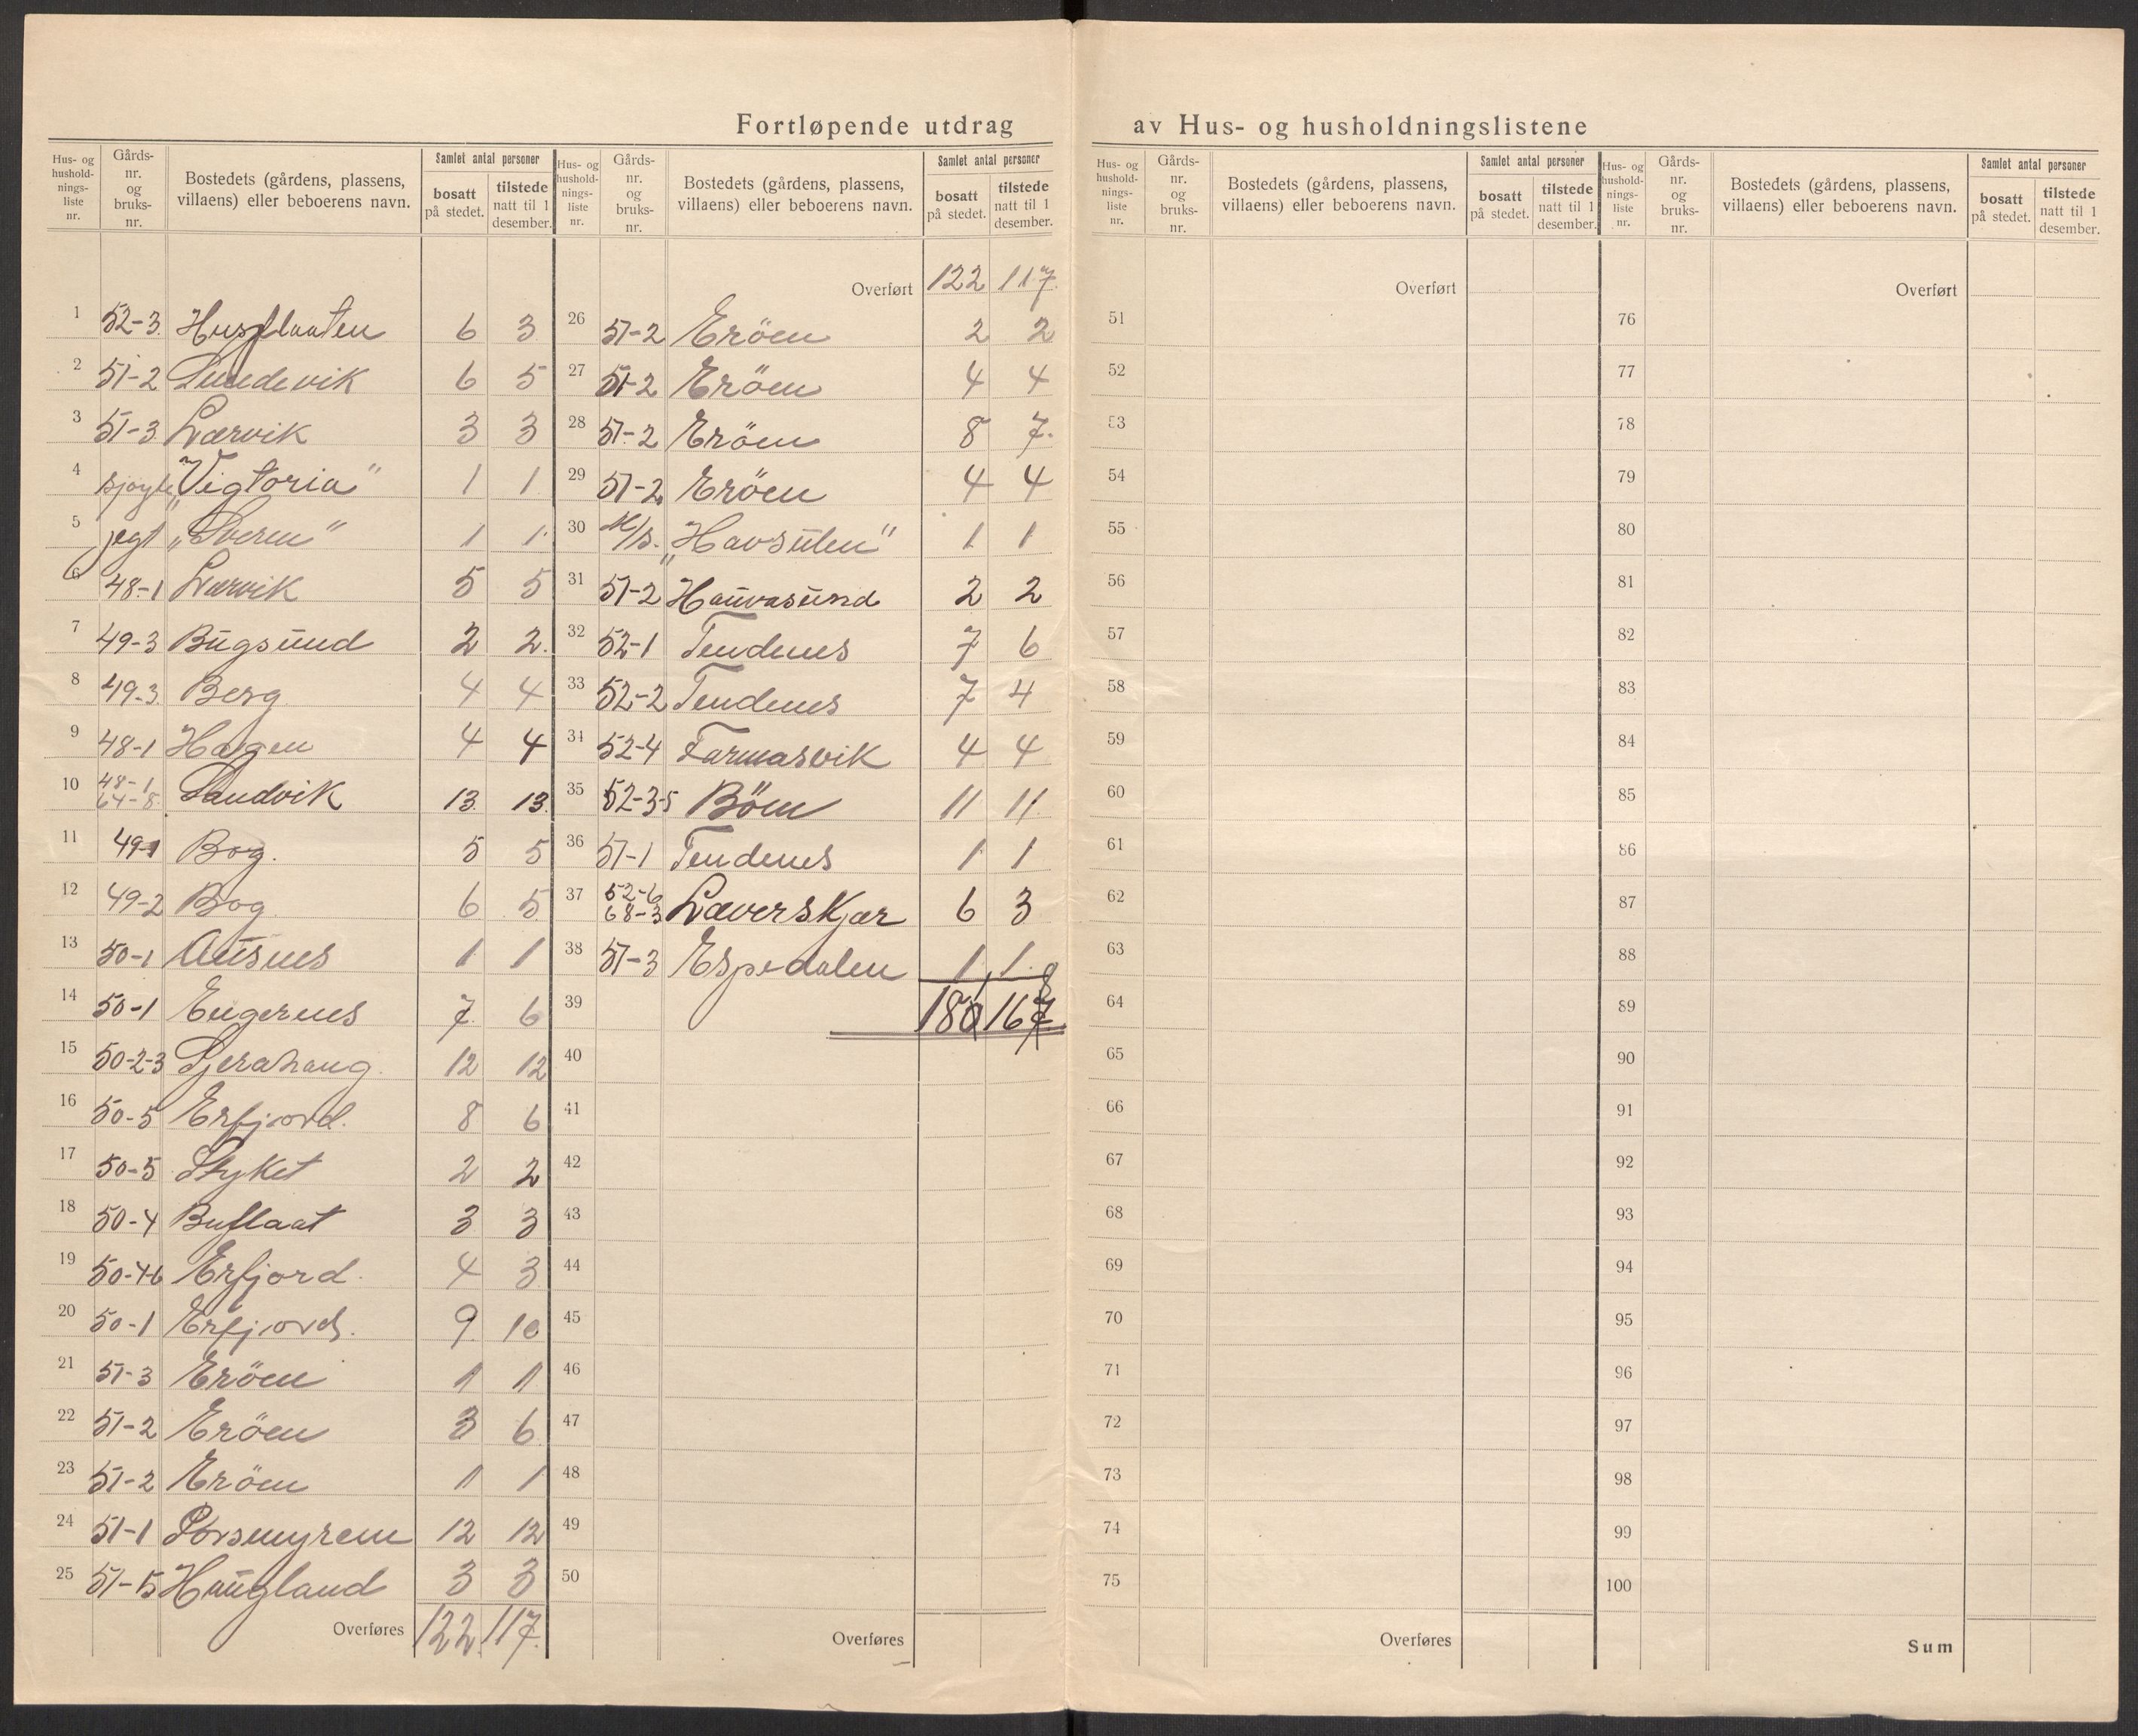 Fortløpende utdrag av Hus- og husholdningslistene
Hus- og hushold-nings-liste nr. Gårds-nr. og bruks-nr. Bostedets (gårdens, plassens, villaens) eller beboerens navn. Samlet antal personer bosatt på stedet. tilstede natt til 1 desember.
1 52-3 Husflaaten 6 3
2 51-2 Sundevik 6 5
3 51-3 Larvik 3 3
4 "Vigtoria" 1 1
5 jegt 1 1
6 48-1 Larvik 5 5
7 49-3 Bugsund 2 2
8 49-3 Berg 4 4
9 48-1 Hagen 4 4
10 48-1 64-8 Sandvik 13 13
11 49-1 Bog. 5 5
12 49-2 Bog 6 5
13 50-1 Ausnes 1 1
14 50-1 Engernes 7 6
15 50-2-3 Tjerahaug. 12 12
16 50-5 Erfjord. 8 6
17 50-5 Stykket 2 2
18 50-4 Buflaat 3 3
19 50-4-6 Erfjord. 4 3
20 50-1 Erfjord. 9 10
21 51-3 Eröen 1 1
22 51-2 Eröen 3 6
23 51-2 Eröen 1 1
24 51-1 Porsmyren 12 12
25 51-15 Haugland 3 3
Overføres 122 117
Hus- og hushold-nings-liste nr. Gårds-nr. og bruks-nr. Bostedets (gårdens, plassens, villaens) eller beboerens navn. Samlet antal personer bosatt på stedet. tilstede natt til 1 desember.
Overført 122 117
26 51-2 Eröen 2 2
27 51-2 Eröen 4 4
28 51-2 Eröen 8 7
29 51-2 Eröen 4 4
30 M/S. "Havsulen" 1 1
31 51-2 Hauvasund 2 2
32 52-1 Tendenes 7 6
33 52-2 Tendenes 7 4
34 52-4 Farmasvik 4 4
35 52-3-5 Böen 11 11
36 51-1 Tendenes 1 1
37 52-6 68-3 Laverskjær 6 3
38 51-3 Espedalen 1 1
39 180 168
40
41
42
43
44
45
46
47
48
49
50
Overføres
Hus- og hushold-nings-liste nr. Gårds-nr. og bruks-nr. Bostedets (gårdens, plassens, villaens) eller beboerens navn. Samlet antal personer bosatt på stedet. tilstede natt til 1 desember.
Overført
51
52
53
54
55
56
57
58
59
60
61
62
63
64
65
66
67
68
69
70
71
72
73
74
75
Overføres
Hus- og hushold-nings-liste nr. Gårds-nr. og bruks-nr. Bostedets (gårdens, plassens, villaens) eller beboerens navn. Samlet antal personer bosatt på stedet. tilstede natt til 1 desember.
Overført
76
77
78
79
80
81
82
83
84
85
86
87
88
89
90
91
92
93
94
95
96
97
98
99
100
Sum